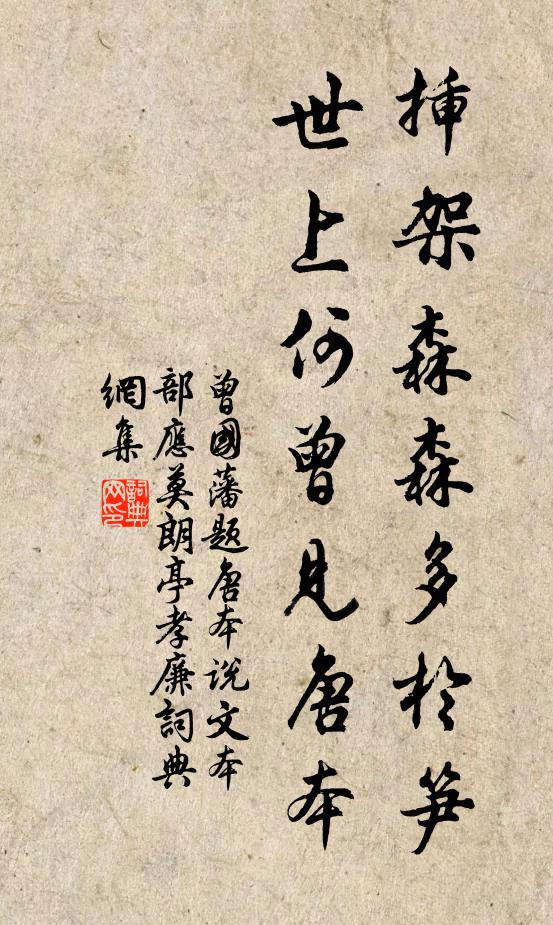 插架森森多於笋
世上何曾見唐本
曾國藩題唐本说文本
部應莫朗亭孝廉詞典
網集
詞典
网印